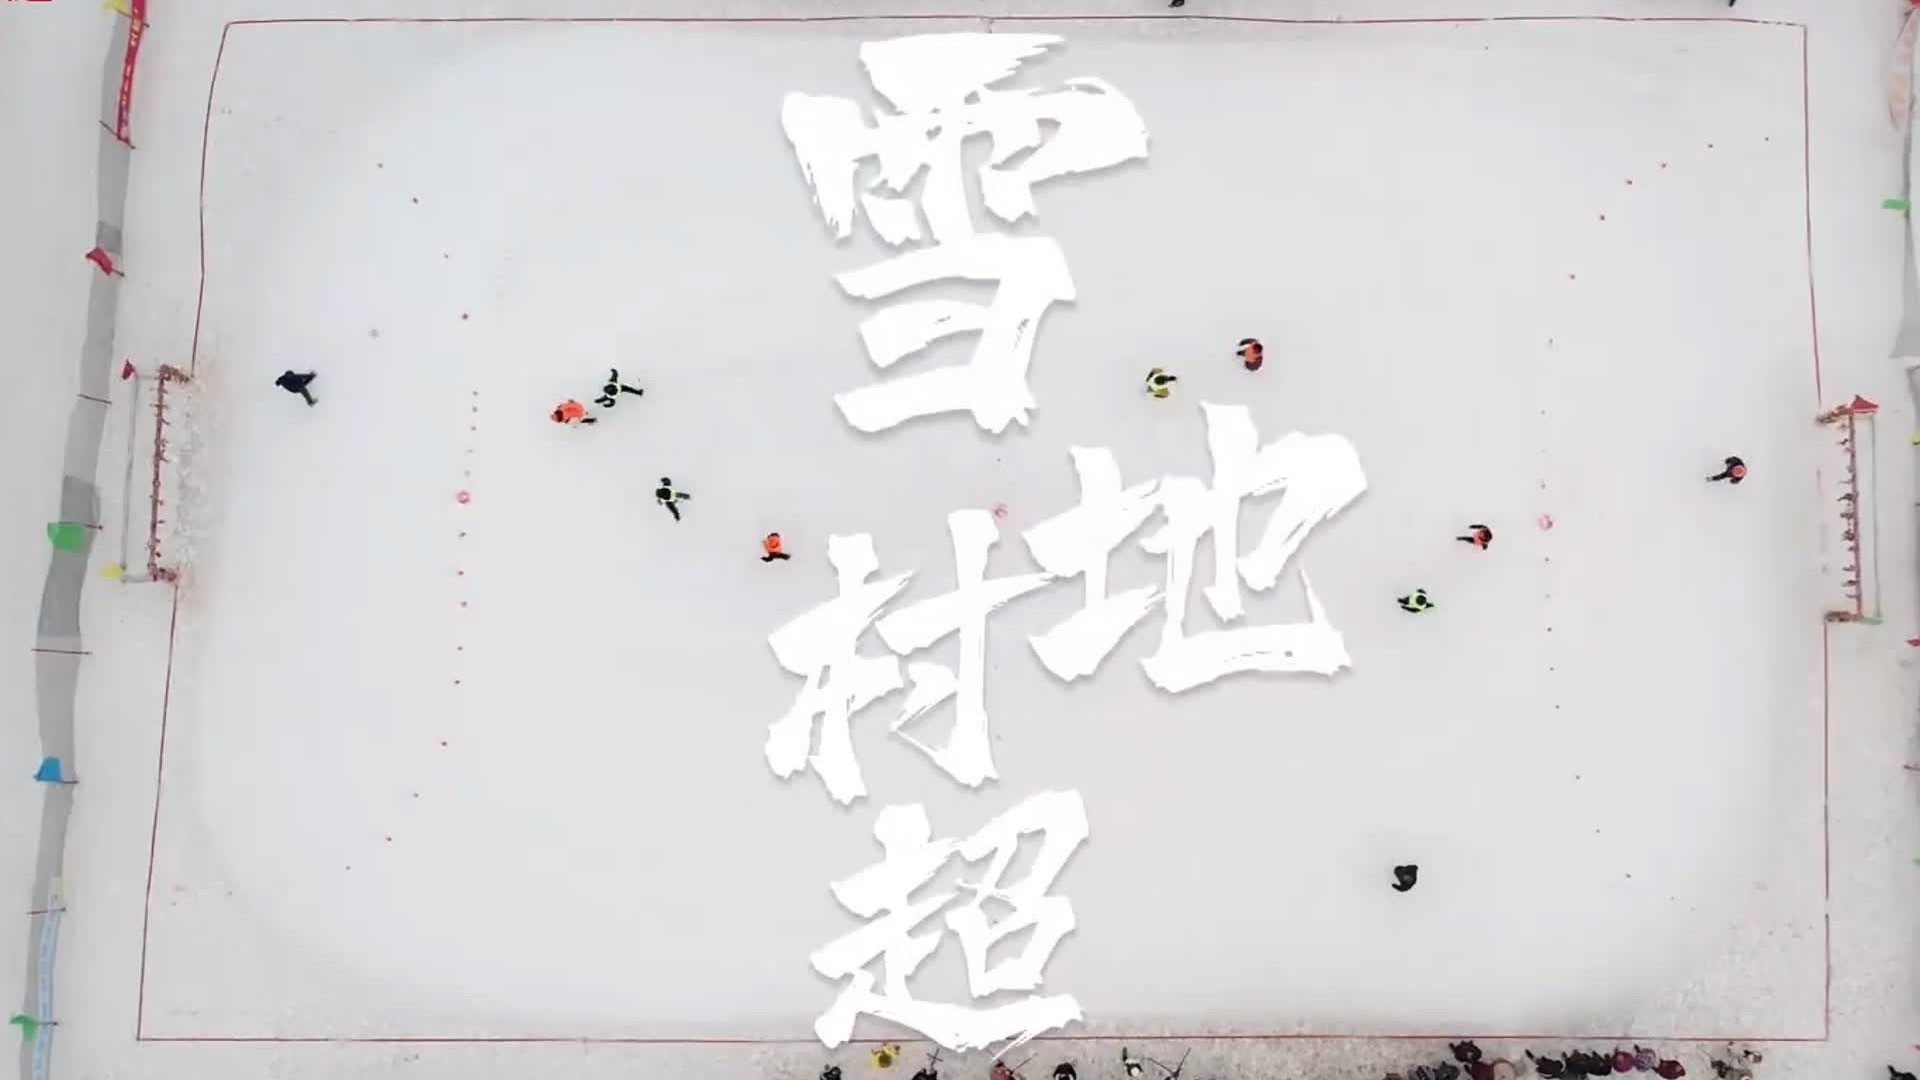 雪
地
村
超